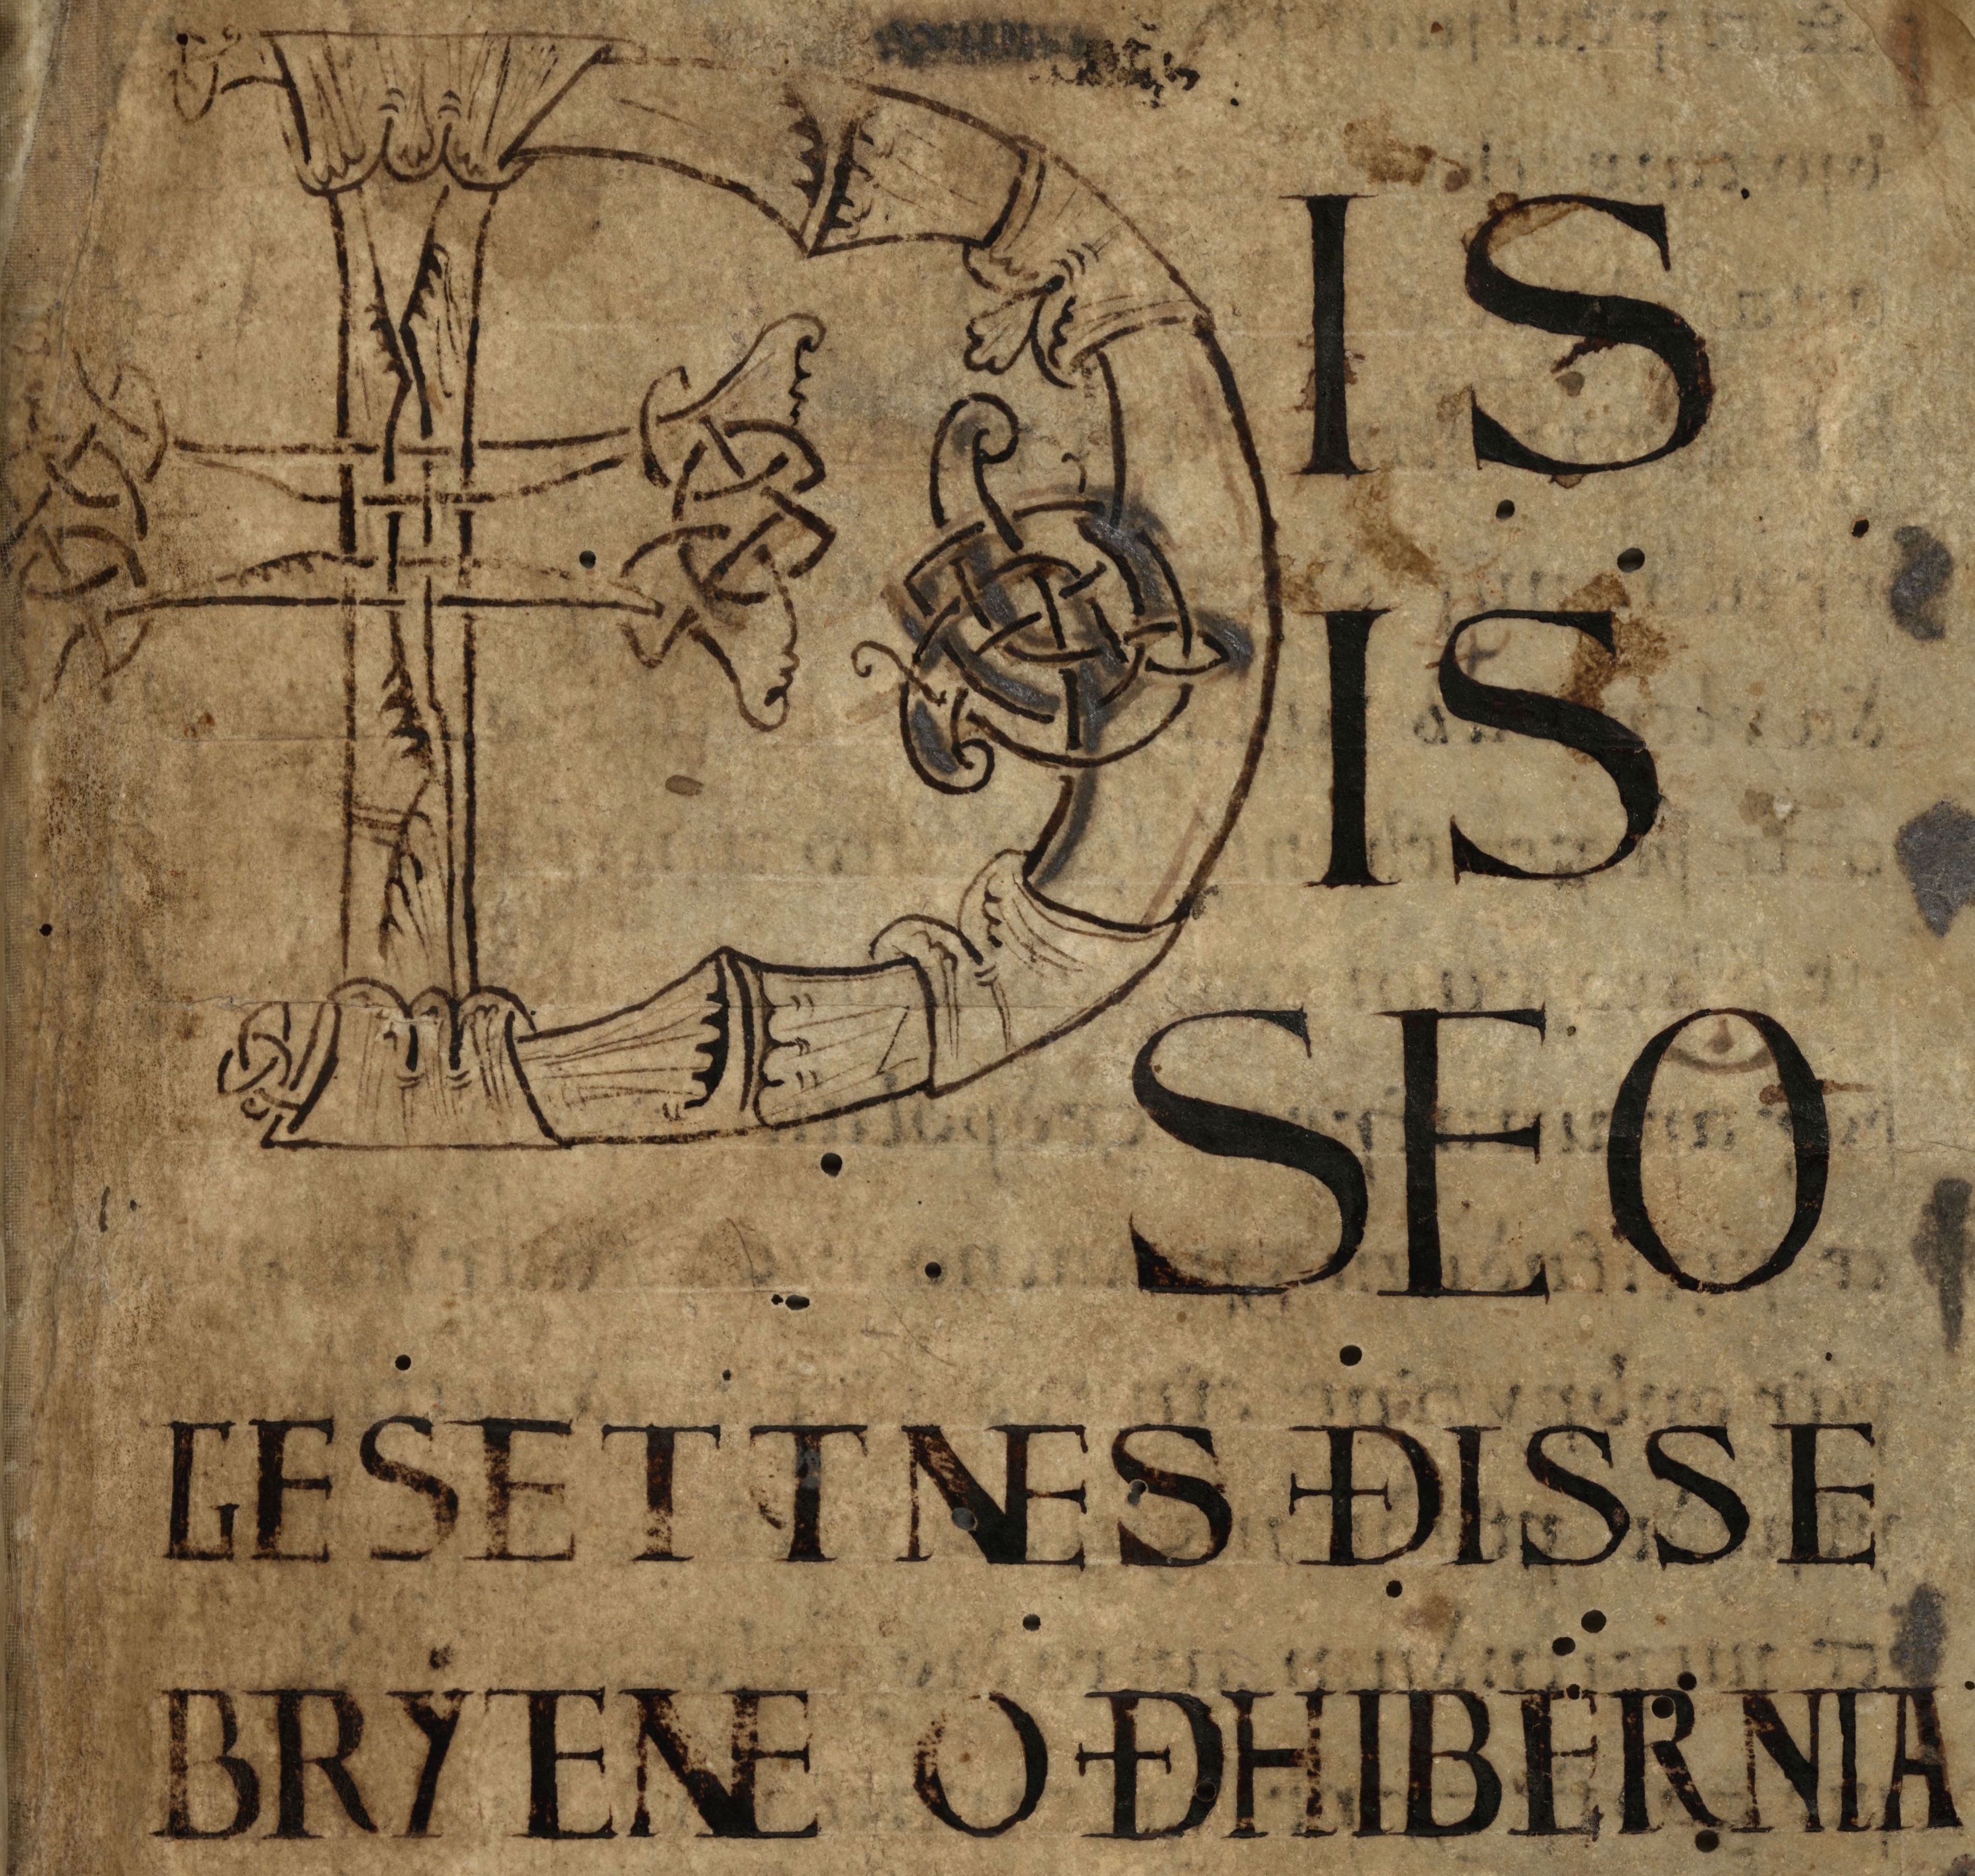 ÐIS
IS
SEO
GESETTNES ÐISSE
BRYTENE OÐHIBERNIA